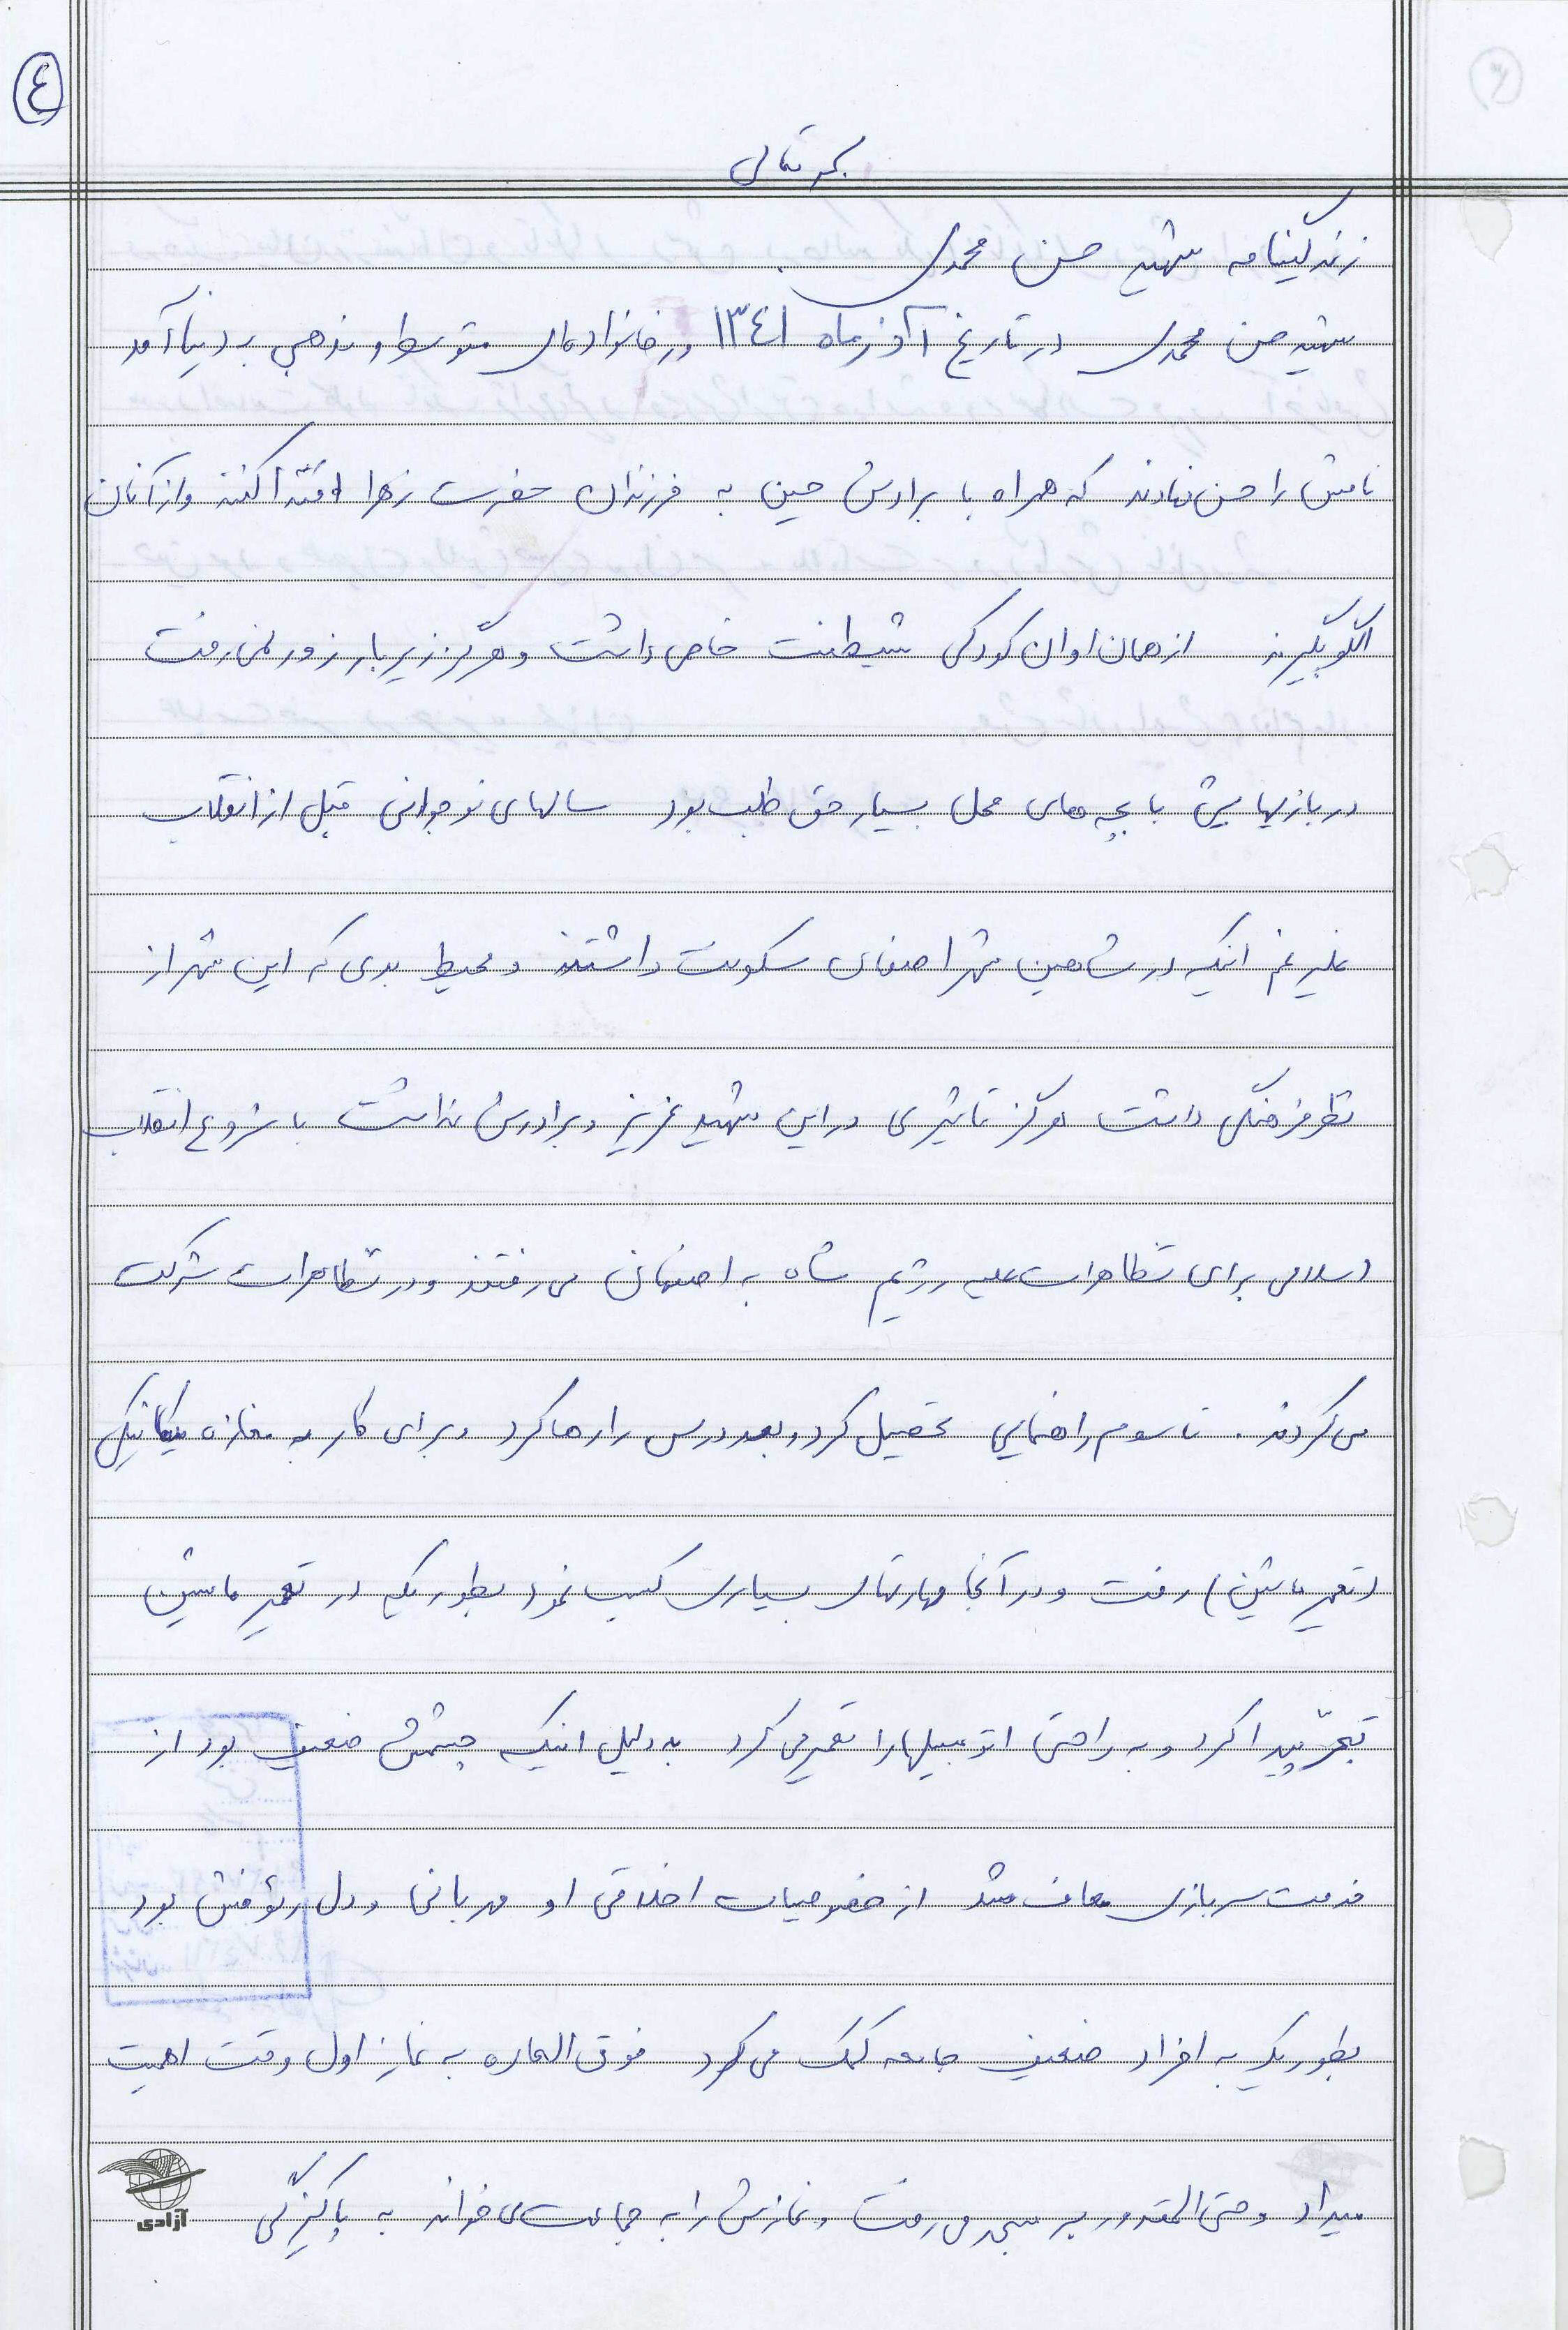 ٤
بسمه تعالی
زندگینامه شهید حسن محمدی
شهید حسن محمدی در تاریخ آذرماه ١٣٤١ در خانواده‌ای متوسط و مذهبی به دنیا آمد
نامش را حسن نهادند که همراه با برادرش حسین به فرزندان حضرت زهرا اقتدا کنند و از آنان
الگو بگیرند از همان اوان کودکی شیطنت خاص داشت و هرگز زیر بار زور نمی رفت
در بازیهایش با بچه های محل بسیار حق طلب بود سالهای نوجوانی قبل از انقلاب
علیرغم اینکه در شاهین شهر اصفهان سکونت داشتند و محیط بدی که این شهر از
نظر فرهنگی داشت هرگز تاثیری در این شهید عزیز و برادرش نداشت با شروع انقلاب
اسلامی برای تظاهرات علیه رژیم شاه به اصفهان می رفتند و در تظاهرات شرکت
می کردند . تا سوم راهنمایی تحصیل کرد و بعد درس را رها کرد و برای کار به مغازه میکانیکی
(تعمیر ماشین) رفت و در آنجا مهارتهای بسیاری کسب نمود بطوریکه در تعمیر ماشین
تبحّر پیدا کرد و به راحتی اتومبیلها را تعمیر می کرد به دلیل اینکه چشمش ضعیف بود از
خدمت سربازی معاف شد از خصوصیات اخلاقی او مهربانی و دل رئوفش بود
بطوریکه به افراد ضعیف جامعه کمک می کرد فوق العاده به نماز اول وقت اهمیت
میداد و حتی المقدور به مسجد می رفت و نمازش را به جماعت می خواند به پاکیزگی
آزادی